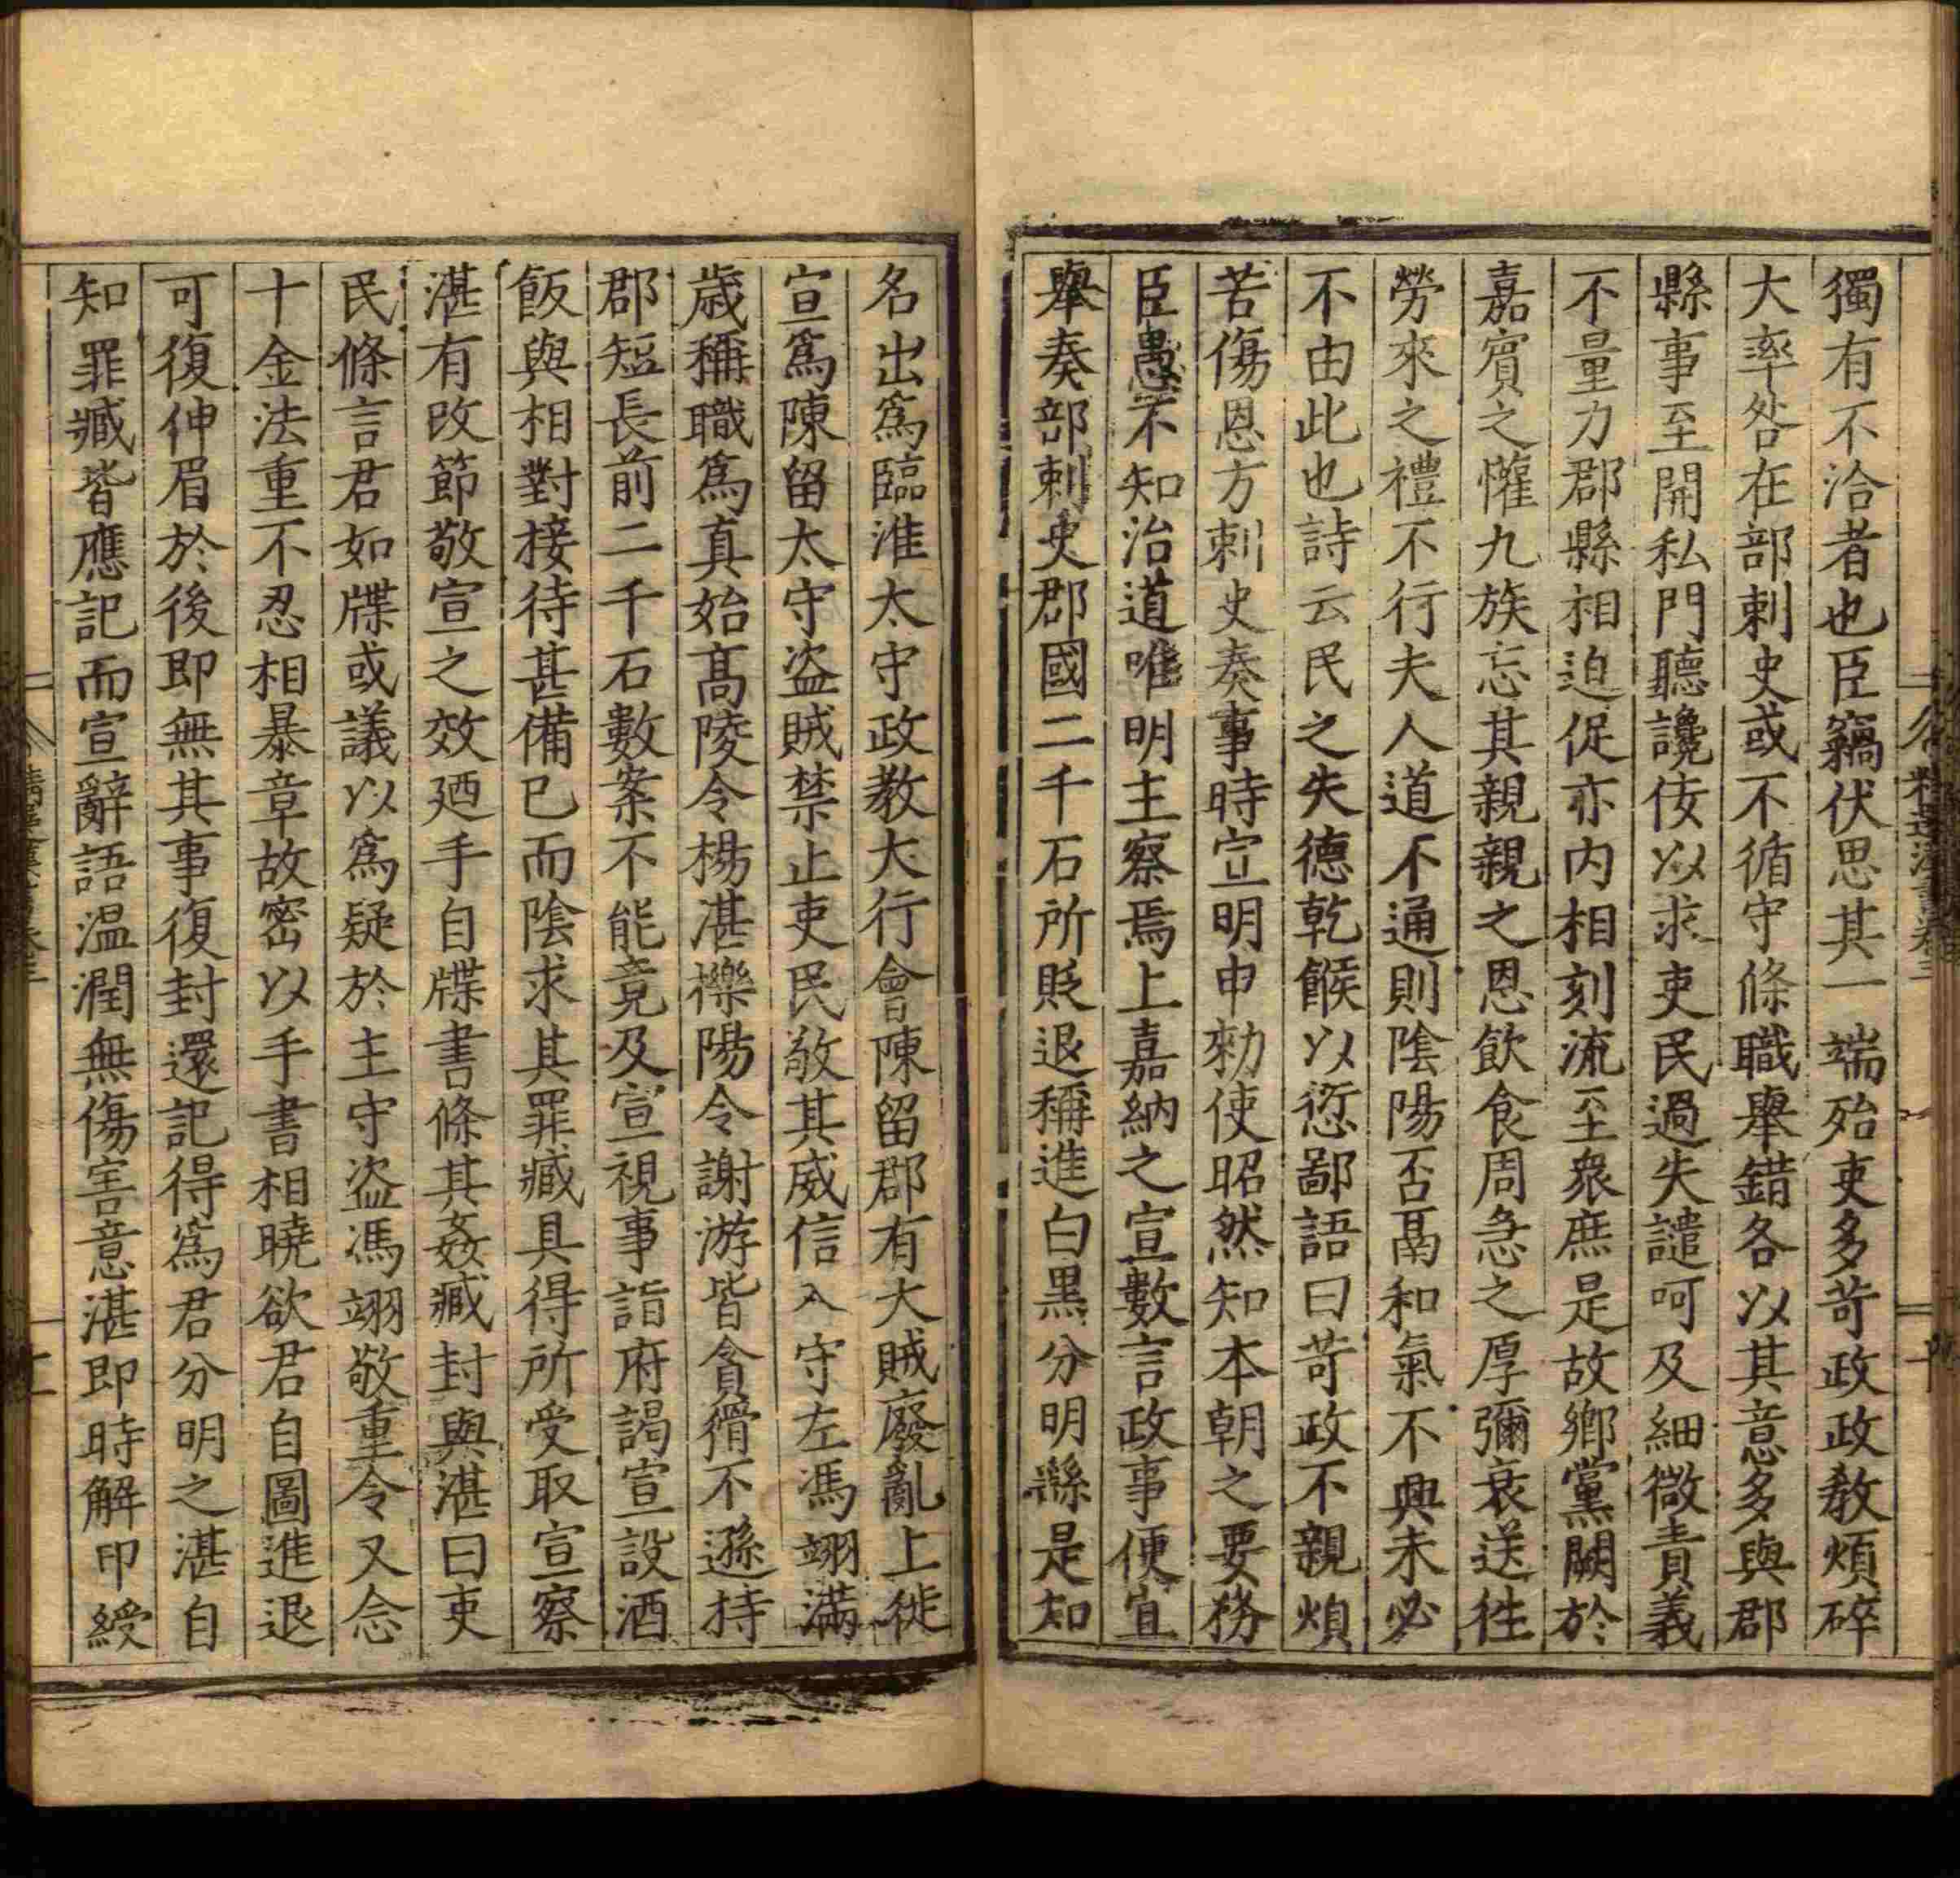 獨有不洽者也臣竊伏思其一端殆吏多苛政政教煩碎
大率咎在部刺史或不循守條職舉錯各以其意多與郡
縣事至開私門聽讒佞以求吏民過失譴呵及細微責義
不量力郡縣相迫促亦内相刻流至衆庶是故鄉黨闕於
嘉賓之懽九族忘其親親之恩飲食周急之厚彌衰送徃
勞來之禮不行夫人道不通則陰陽否鬲和氣不興未必
不由此也詩云民之失德乾餱以愆鄙語曰苛政不親煩
苦傷恩方刺史奏事時宜明申勑使昭然知本朝之要務
臣愚不知治道唯明主察焉上嘉納之宣數言政事便宜
舉奏部刺史郡國二千石所貶退稱進白黑分明繇是知
名出爲臨淮太守政教大行會陳留郡有大賊廢亂上徙
宣爲陳留太守盜賊禁止吏民敬其威信入守左馮翊滿
歲稱職爲真始高陵令楊湛櫟陽令謝游皆貪猾不遜持
郡短長前二千石數案不能竟及宣視事詣府謁宣設酒
飯與相對接待甚備已而陰求其罪臧具得所受取宣察
湛有改節敬宣之效廼手自牒書條其姦臧封與湛曰吏
民條言君如牒或議以爲疑於主守盜馮翊敬重令又念
十金法重不忍相暴章故密以手書相曉欲君自圖進退
可復伸眉於後即無其事復封還記得爲君分明之湛自
知罪臧皆應記而宣辭語温潤無傷害意湛即時解印綬